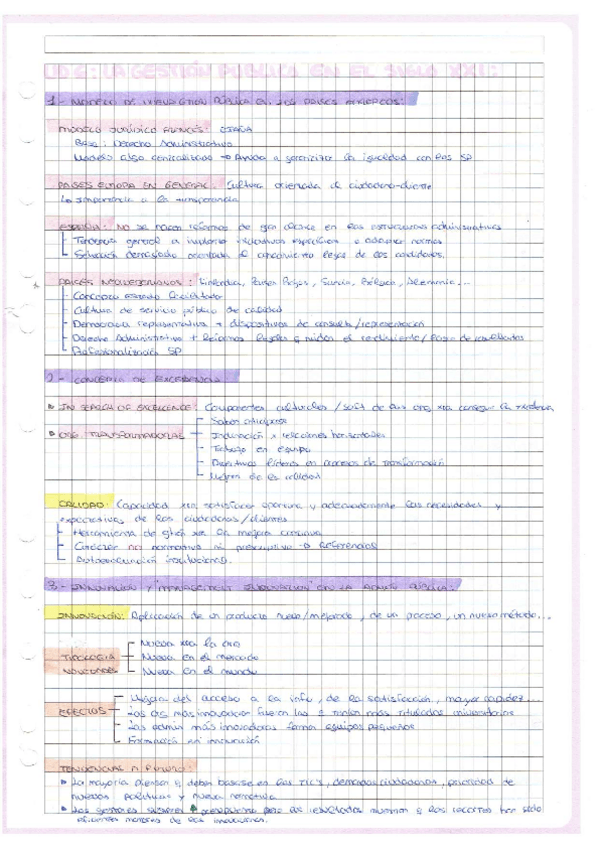 UD 6: LA GESTIÓN PÚBLICA EN EL SIGLO XXI:
1- MODELO DE PÚBLICA EN LOS PAISES EUROPEOS:
MODELO JURÍDICO FRANCÉS: ESPAÑA
Base: Derecho Administrativo
Modelo algo centralizado → Ayuda a garantizar la igualdad con los SP
PAISES EUROPA EN GENERAL: Cultura orientada al ciudadano-cliente
la transparencia
ESPAÑA: NO se hacen reformas de gran alcance en las estructuras administrativas
Tendencia general a específicas o adaptar normas
Selección demasiado orientada al conocimiento legal de los candidatos.
PAISES : Finlandia, Paises Bajos, Suecia, Bélgica, Alemania...
Concepto estado facilitador
Cultura de servicio público de calidad
Democracia representativa + dispositivos de consulta/representación
Derecho Administrativo + Reformas legales el rendimiento/ de resultados
Profesionalización SP
2- CONCEPTO DE EXCELENCIA
IN SEARCH OF EXCELLENCE: Componentes culturales / soft de las org xra conseguir la excelencia
ORG. TRANSFORMADORAS Saben anticiparse
Inclinación a relaciones horizontales
Trabajo en equipo
Directivos líderes en procesos de transformación
Mejora de la calidad
CALIDAD: Capacidad xra satisfacer oportuna y adecuadamente las necesidades y
expectativas de los ciudadanos/clientes
Herramienta de gtión xra la mejora continua
Carácter no normativo ni prescriptivo → Referencias
Autoevaluación instituciones.
3- INNOVACIÓN Y "MANAGEMENT INNOVATION" EN LA ADMÓN PÚBLICA:
INNOVACIÓN: Aplicación de un producto nuevo/mejorado, de un proceso, un nuevo método...
TIPOLOGIA NOVEDADES
Nueva xra la org
Nueva en el mercado
Nueva en el mundo
EFECTOS
Mejora del acceso a la info, de la satisfacción, mayor rapidez...
Las más innovadoras fueron las q tenían más titulados universitarios
Las admin más innovadoras forman equipos pequeños
Formación en innovación
TENDENCIAS A FUTURO:
La mayoría piensan q deben basarse en las TIC's, demandas ciudadanas, prioridad de
nuevas políticas y nueva normativa
Los gestores ↑ presupuesto pero los resultados q los recortes han sido
eficientes de las innovaciones.